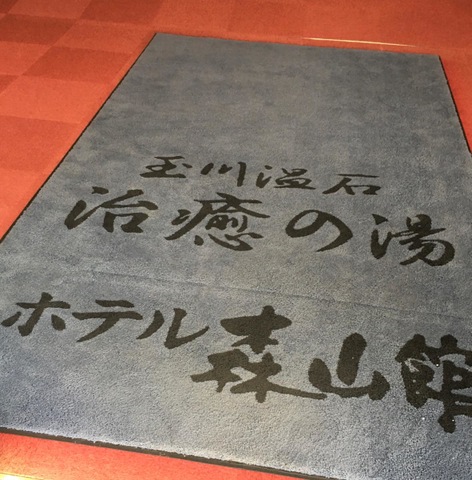 玉川温石
治癒の湯
ホテル森山館